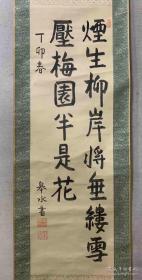 煙生柳岸將垂縷雪
壓梅園半是花
丁卯春
皋水書